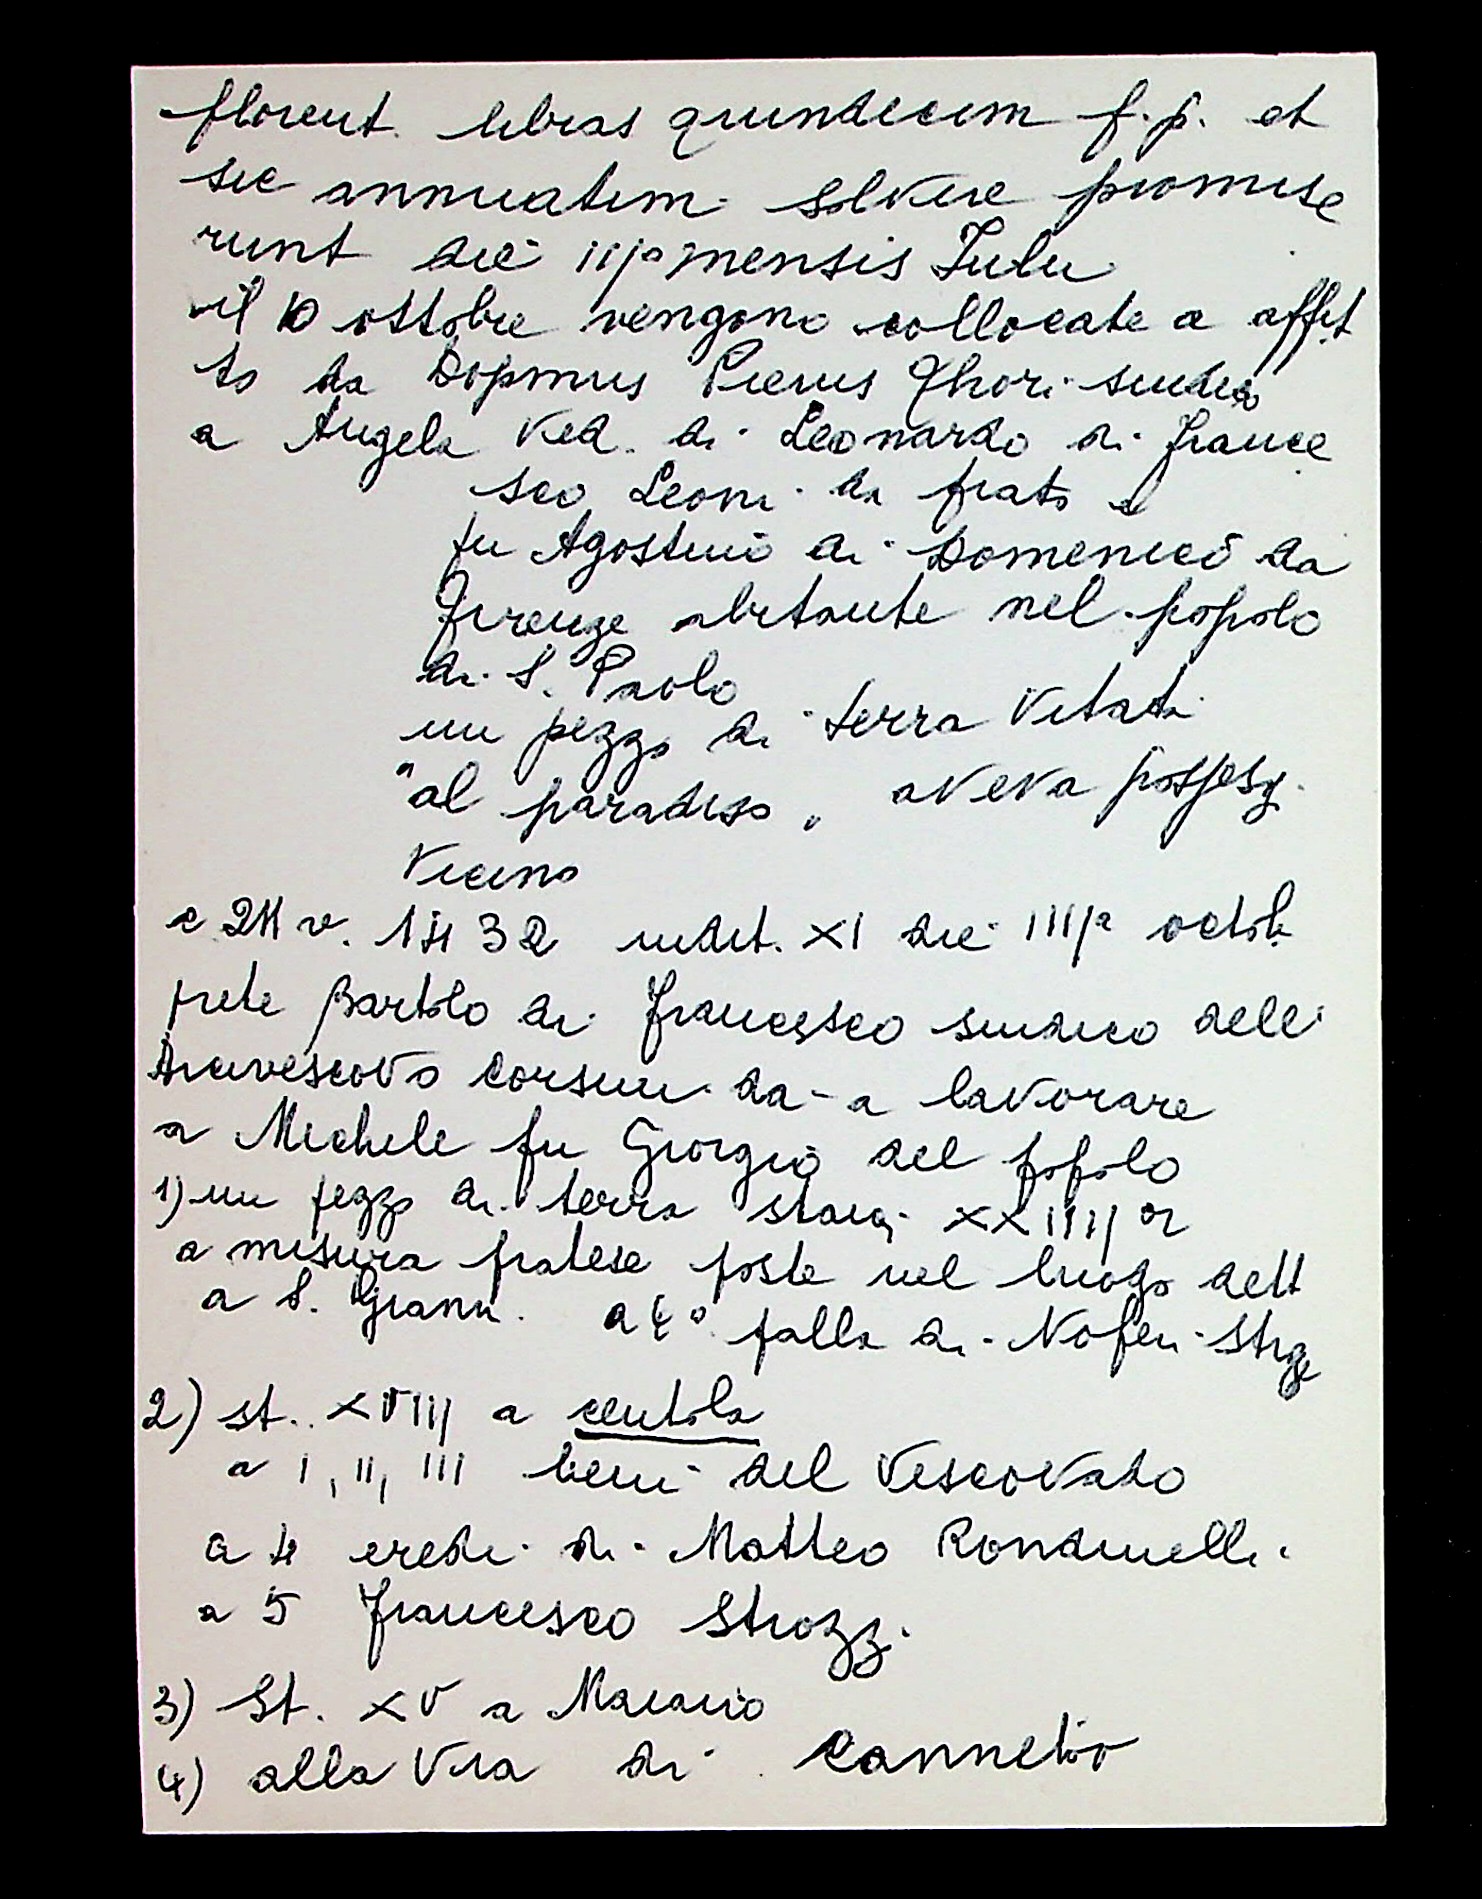 florent. libras quindecim f.p. et
sic annuatim solvere promise
runt die iijª mensis Julii
il 10 ottobre vengono collocate a affit
to da Dopmus Pierus Ghori sindico
a Angela Ved. di Leonardo di France
sco Leoni da Prato e
fu Agostino di Domenico da
Firenze abitante nel popolo
di S. Paolo
un pezzo di terra Vitata
"al paradiso" aveva possess.
Vicino
c 211 v. 1432 indit. XI die IIIjª octob.
prete Bartolo di Francesco sindaco dell'
Arcivescovo Corsini da - a lavorare
a Michele fu Giorgio del popolo
1) un pezzo di terra staia XXIIIj
a misura pratese poste nel luogo dett
a S. Giann. a 4° falla di Noferi Stroz
2) st. XVIIj a centola
a I, II, III beni del Vescovato
a 4 eredi di Matteo Rondinelli
a 5 Francesco Strozzi
3) St. XV a Macario
4) alla Via di Canneto